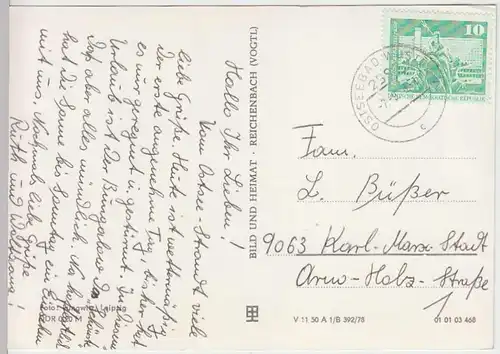 Hallo Ihr Lieben!
Vom Ostsee-Strandt viele
liebe Grüße. Heute ist wettermäßig
der erste angenehme Tag, bisher hat
es nur geregnet u. gestürmt. In diesem
Urlaub ist der Bungalow das
Daß aber alles mündlich, wo hoffentlich
hat die Sonne bis Samstag ein Einsehen
mit uns. Nochmals liebe Grüße
Ruth und Wolfgang!
Leipzig
BILD UND HEIMAT · REICHENBACH (VOGTL)
10
DEMOKRATISCHE REPUBLIK
OSTSEEBAD
Fam.
L. Büßer
9063 Karl-Marx-Stadt
Arno-Holz-Straße
1
V 11 50 A 1/B 392/78
01 01 03 468